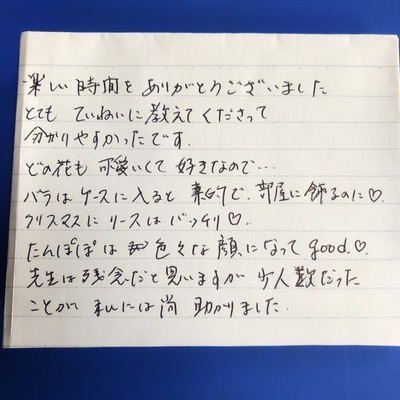 楽しい時間をありがとうございました
とてもていねいに教えてくださって
分かりやすかったです.
どの花も可愛いくて好きなので…
バラはケースに入ると素的で、部屋に飾るのに♡.
クリスマスにリースはバッチリ♡.
たんぽぽは色々な顔になって good.♡.
先生は残念だと思いますが少人数だった
ことが私には尚助かりました.